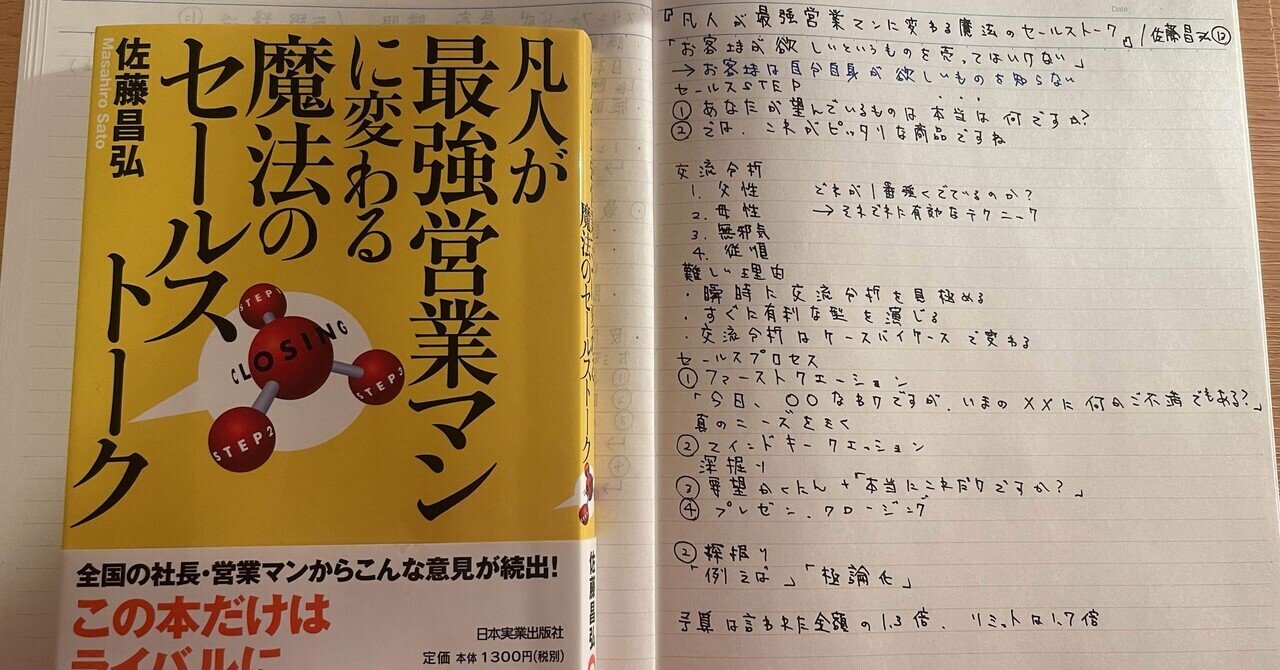 凡人が
最強営業マン
に変わる
魔法の
セールス
トーク
佐藤昌弘
Masahiro Sato
STEP1
CLOSING
STEP2
STEP3
全国の社長・営業マンからこんな意見が続出!
この本だけは
ライバルに
日本実業出版社
定価 本体1300円(税別)
魔法のセールストーク
佐藤昌弘
Date
『凡人が最強営業マンに変わる魔法のセールストーク』/佐藤昌弘⑫
「お客様が欲しいというものを売ってはいけない」
→お客様は自分自身が欲しいものを知らない
セールスSTEP
①あなたが望んでいるものは本当は何ですか?
②では、これがピッタリな商品ですね
交流分析
1. 父性 どれが1番強くでているのか?
2. 母性 →それぞれに有効なテクニック
3. 無邪気
4. 従順
難しい理由
・瞬時に交流分析を見極める
・すぐに有利な型を演じる
・交流分析はケースバイケースで変わる
セールスプロセス
①ファーストクエーション
「今日、〇〇なもりですが、いまの××に何かご不満でもある?」
真のニーズをきく
②マインドキークエッション
深掘り
③要望かくにん+「本当にこれだけですか?」
④プレゼン、クロージング
②探掘り
「例えば」「極論化」
予算は言われた金額の1.3倍、リミットは1.7倍